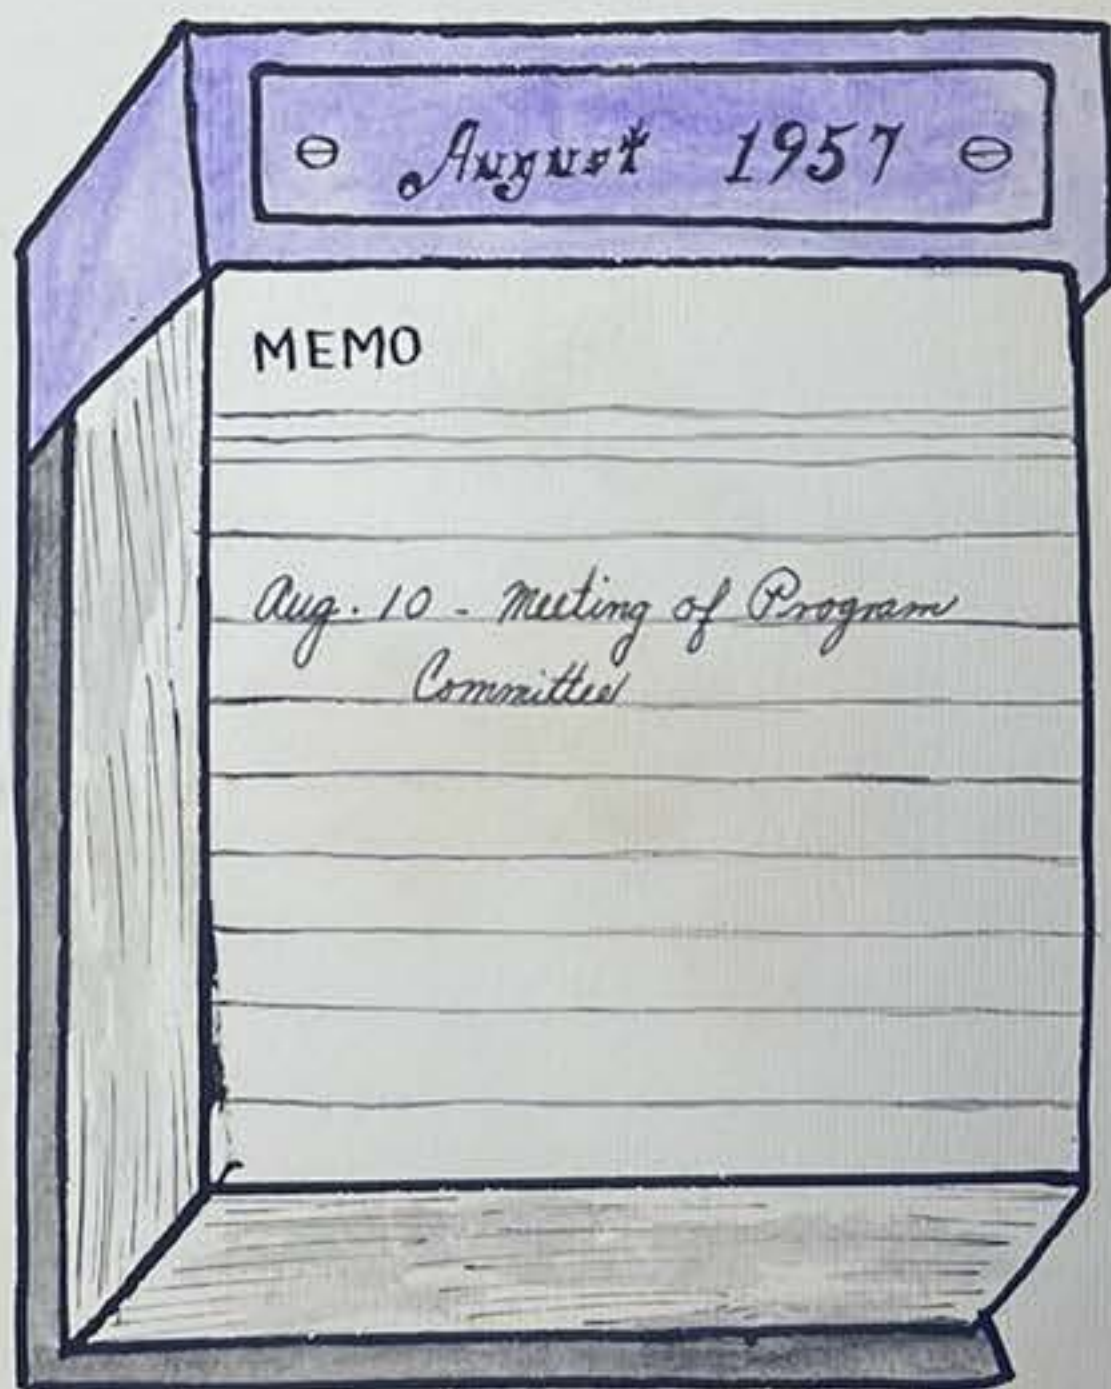 August 1957
MEMO
Aug. 10 - Meeting of Program
Committee